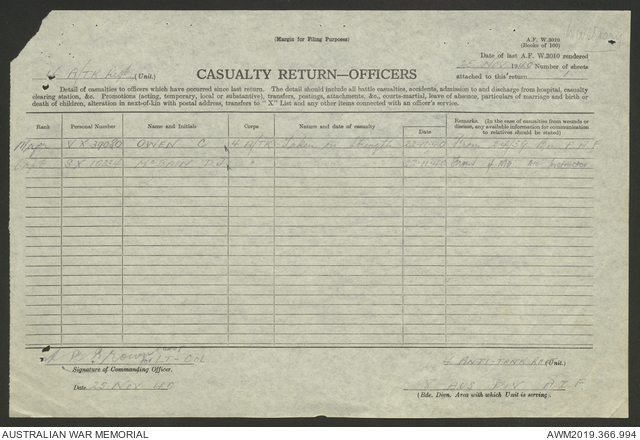 (Margin for Filing Purposes)
A.F. W.3010
(Books of 100)
Date of last A.F. W.3010 rendered
Nov 1940 Number of sheets
attached to this return
A/TK Regt (Unit.)
CASUALTY RETURN—OFFICERS
Detail of casualties to officers which have occurred since last return. The detail should include all battle casualties, accidents, admission to and discharge from hospital, casualty
clearing station, &c. Promotions (acting, temporary, local or substantive), transfers, postings, attachments, &c., courts-martial, leave of absence, particulars of marriage and birth or
death of children, alteration in next-of-kin with postal address, transfers to "X" List and any other items connected with an officer's service.
Rank Personal Number Name and Initials Corps Nature and date of casualty Date Remarks (In the case of casualties from wounds or disease, any available information for communication to relatives should be stated)
Major VX39080 OWEN C 4 A/TK Taken on Strength 22-11-40 From A.I.F
Capt SX D J " " 22-11-40
Lt-Col
Signature of Commanding Officer.
Date 25 Nov 40
4 ANTI-TANK Regt (Unit.)
8 AUS DIV A.I.F
(Bde. Divn. Area with which Unit is serving).
AUSTRALIAN WAR MEMORIAL
AWM2019.366.994